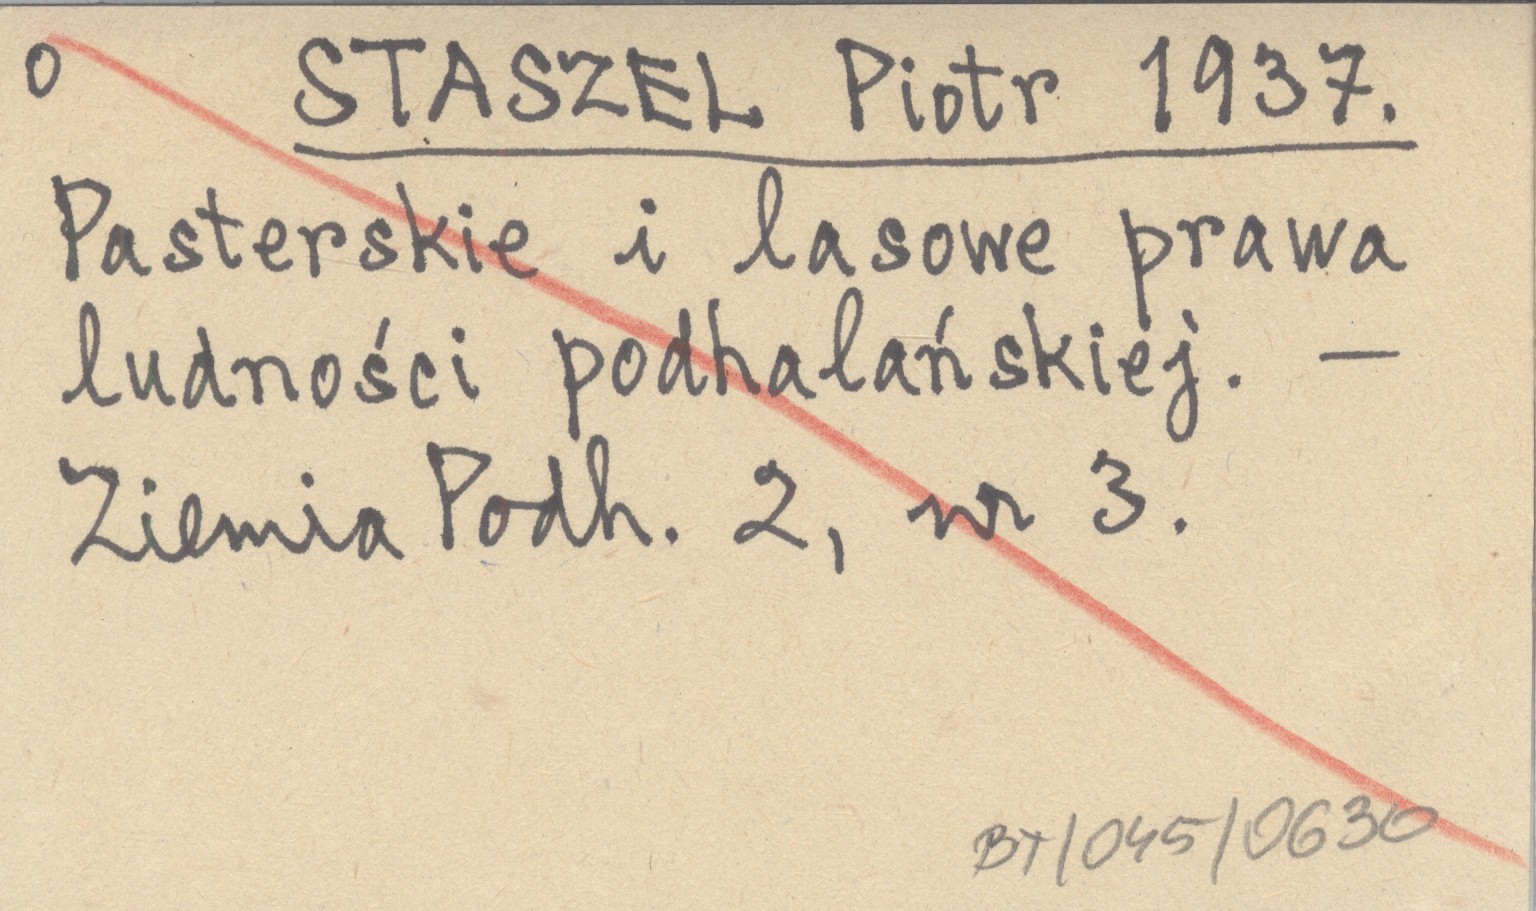 o STASZEL Piotr 1937.
Pasterskie i lasowe prawa
ludności podhalańskiej. —
Ziemia Podh. 2, nr 3.
BT/045/0630